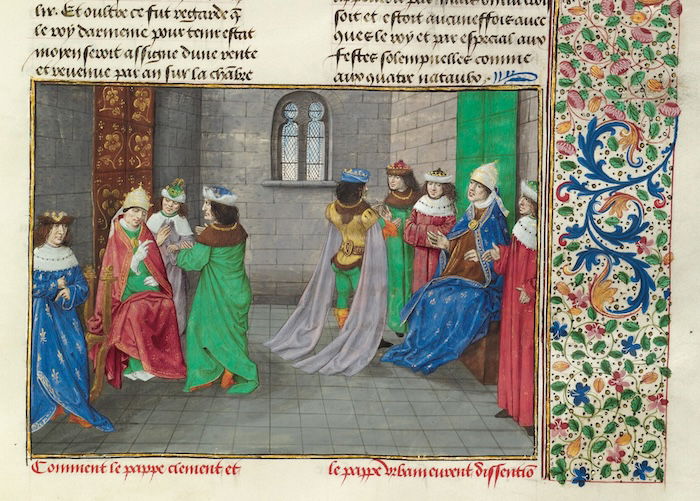 lir. Et oultre ce fut regarde q̄
le roy darmenie pour tenir estat
moyen seroit assigne dune rente
et revenue par an sur la chābre
soit et estoit aucuneffois avec
ques le roy et par especial aux
festes solempnelles comme
aux quatre nataulx.
Comment le pappe clement et
le pappe vrbain eurent dissentiō